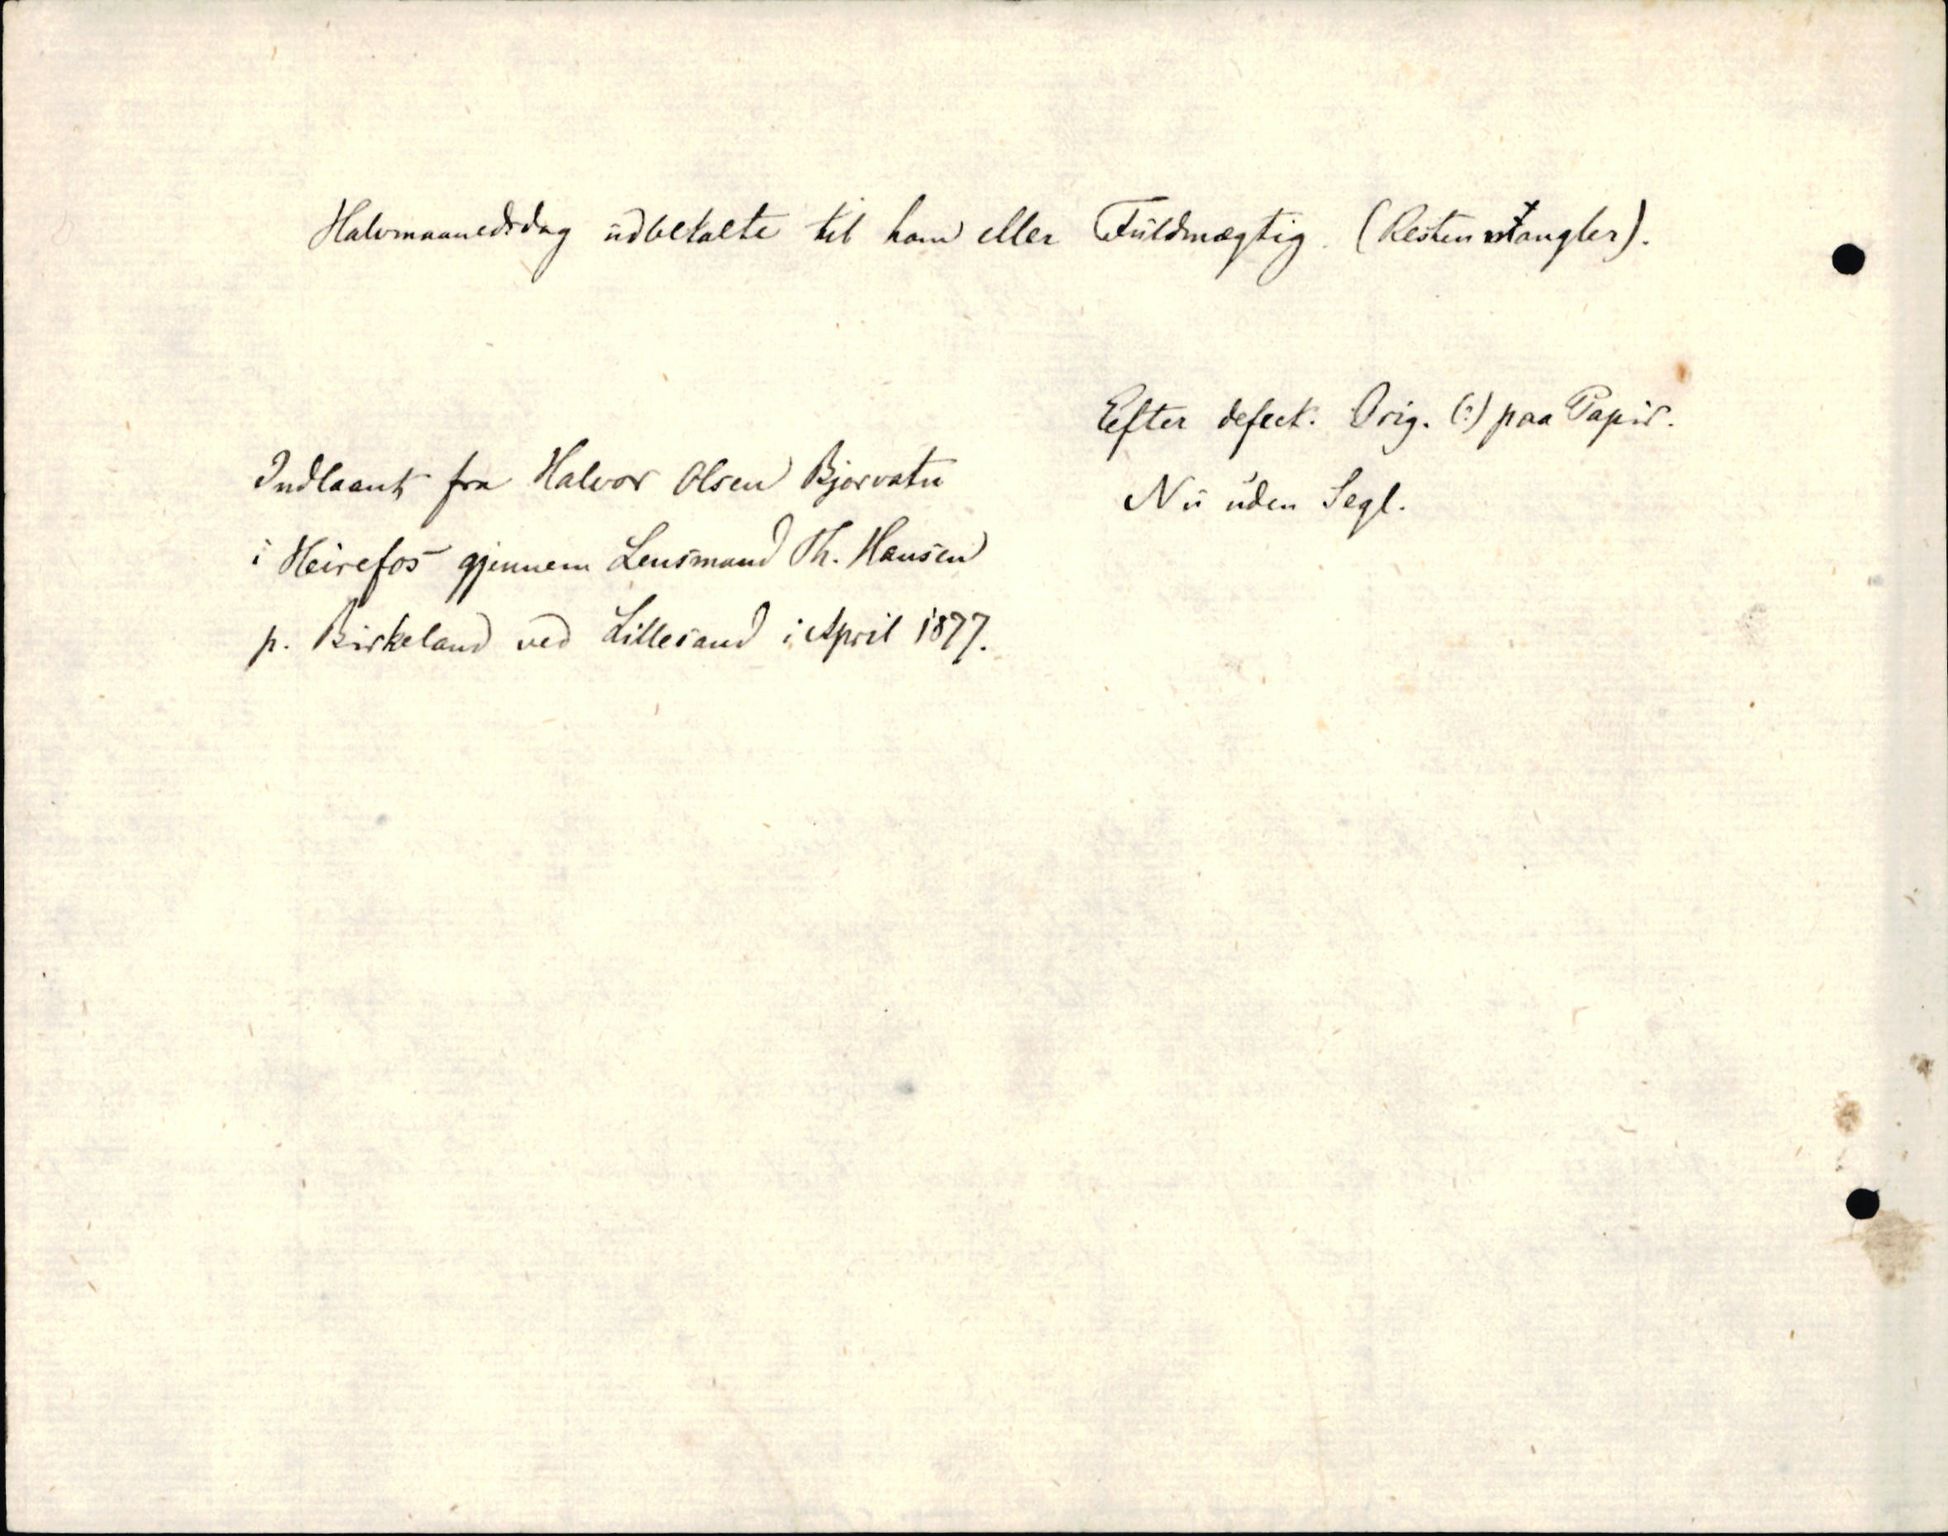 Halvmaanedsdag udbetalte til ham eller Fuldmægtig. (Resten mangler).
Efter defect. Orig. (?) paa Papir.
Nu uden Segl.
Indlaant fra Halvor Olsen Bjorvatn
i Heirefos gjennem Lensmand Th. Hansen
p. Birkeland ved Lillesand i April 1877.